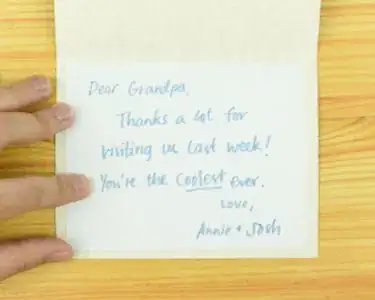 Dear Grandpa,
Thanks a lot for
visiting us last week!
You're the coolest ever.
Love,
Annie + Josh